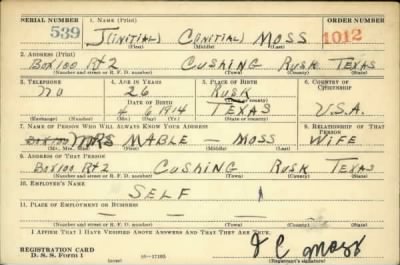 SERIAL NUMBER 1. NAME (Print) ORDER NUMBER
539 J(INITIAL) C(INITIAL) MOSS 1012
(First) (Middle) (Last)
2. ADDRESS (Print)
BOX100 Rt2 CUSHING RUSK TEXAS
(Number and street or R. F. D. number) (Town) (County) (State)
3. TELEPHONE 4. AGE IN YEARS 5. PLACE OF BIRTH 6. COUNTRY OF CITIZENSHIP
no 26 RUSK
DATE OF BIRTH (Town or county)
4 6 1914 TEXAS U.S.A.
(Exchange) (Number) (Mo.) (Day) (Yr.) (State or country)
7. NAME OF PERSON WHO WILL ALWAYS KNOW YOUR ADDRESS 8. RELATIONSHIP OF THAT PERSON
Box100 MRS MABLE — MOSS WIFE
(Mr., Mrs., Miss) (First) (Middle) (Last)
9. ADDRESS OF THAT PERSON
BOX100 Rt2 CUSHING RUSK TEXAS
(Number and street or R. F. D. number) (Town) (County) (State)
10. EMPLOYER'S NAME
SELF
11. PLACE OF EMPLOYMENT OR BUSINESS
(Number and street or R. F. D. number) (Town) (County) (State)
I AFFIRM THAT I HAVE VERIFIED ABOVE ANSWERS AND THAT THEY ARE TRUE.
REGISTRATION CARD
D. S. S. Form 1 (over) 16—17105 J C Moss
(Registrant's signature)